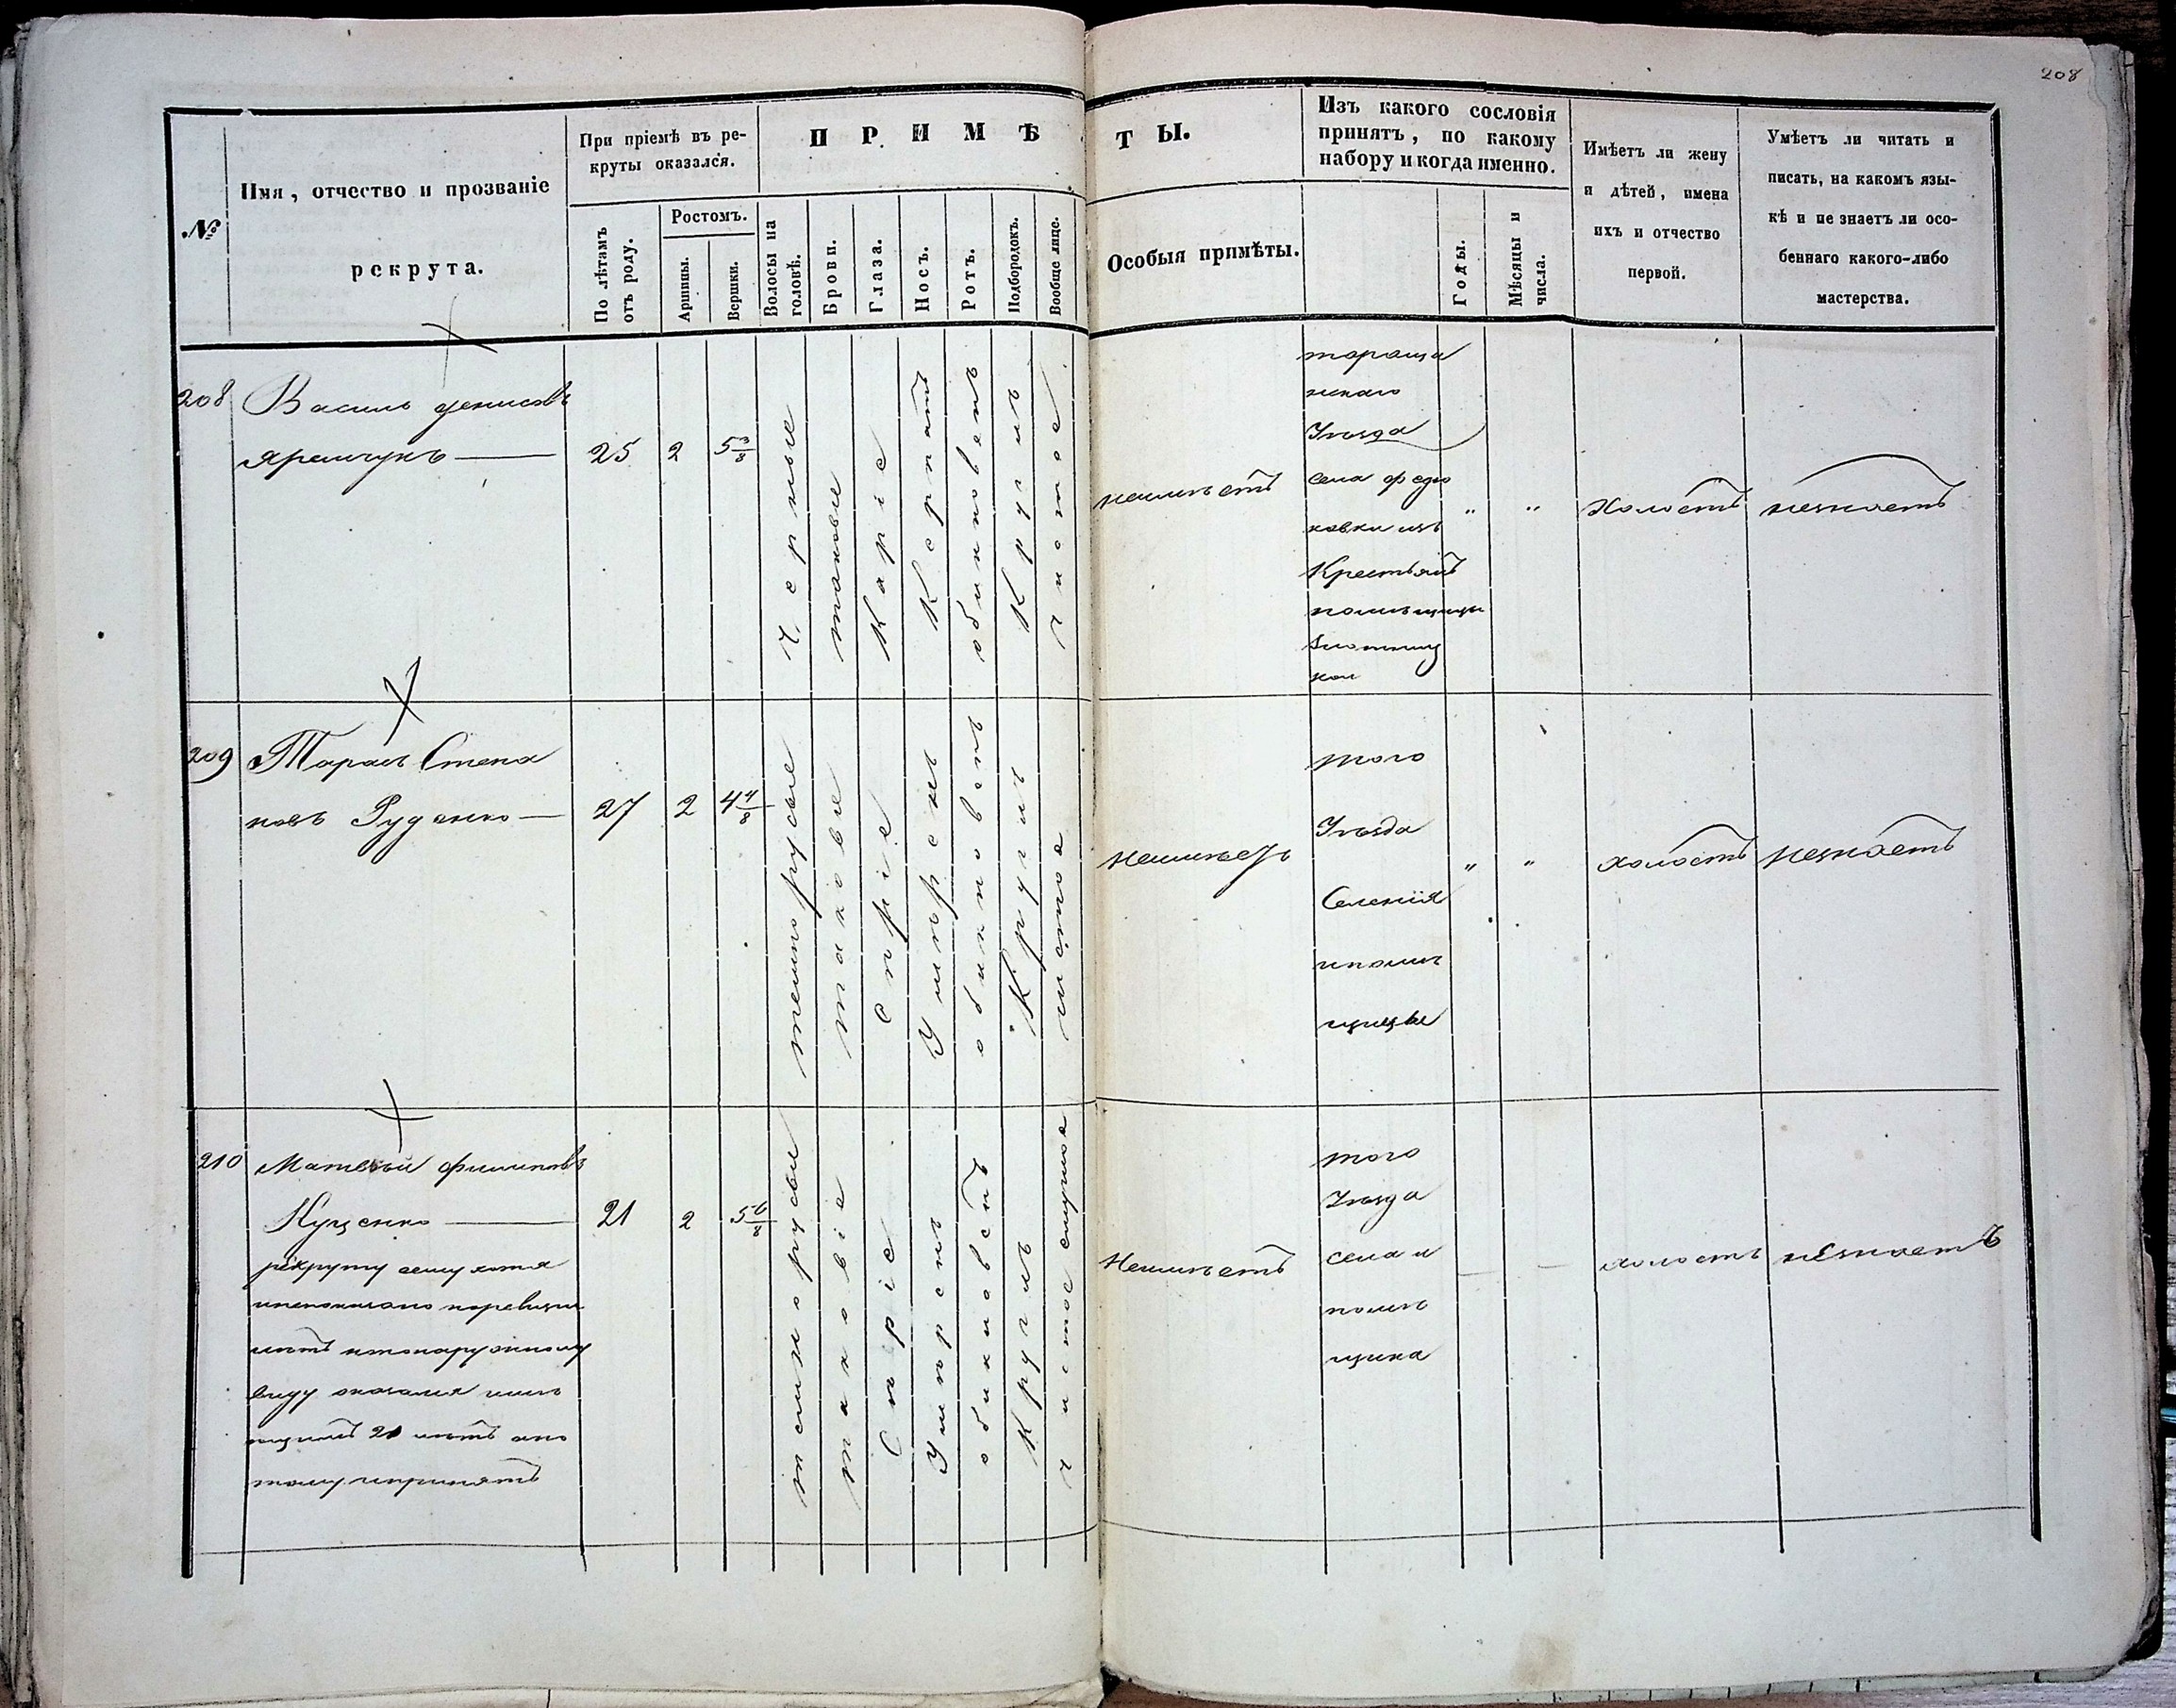 208
№
Имя, отчество и прозваніе
рекрута.
При пріемѣ въ ре-
круты оказался.
По лѣтамъ
отъ роду.
Ростомъ.
Аршины.
Вершки.
ПРИМѢ
Волосы на
головѣ.
Брови.
Глаза.
Носъ.
Ротъ.
Подбородокъ.
Вообще лице.
ТЫ.
Особыя примѣты.
Изъ какого сословія
принятъ, по какому
набору и когда именно.
Годы.
Мѣсяцы и
числа.
Имѣетъ ли жену
и дѣтей, имена
ихъ и отчество
первой.
Умѣетъ ли читать и
писать, на какомъ язы-
кѣ и не знаетъ ли осо-
беннаго какого-либо
мастерства.
208
Василь Денисовъ
Яремчукъ
25
2
5 3/8
Черные
таковые
Каріе
Керпатъ
обикновенъ
Круглъ
чистое
неимѣетъ
тараща
нскаго
Уѣзда
села Федю
ковки изъ
Крестьянъ
помѣщицы
"
"
Холостъ
незнаетъ
209
Тарасъ Степа
новъ Руденко
27
2
4 4/8
темнорусые
таковые
Сѣріе
Умѣренъ
обикновенъ
Круглъ
чистое
неимѣетъ
того
Уѣзда
Селенія
ипомѣ
щицы
"
"
холостъ
незнаетъ
210
Матвѣй Филиповъ
Куценко
рекруту сему хотя
инепоказано поревизіи
лѣтъ нопонаружному
виду оказался имѣ
ющимъ 21 лѣтъ апо
тому ипринятъ
21
2
5 6/8
темнорусые
таковіе
Сѣріе
Умѣренъ
обикновенъ
Круглъ
чистое смуглое
Неимѣетъ
того
Уѣзда
села и
помѣ
щика
холостъ
незнаетъ